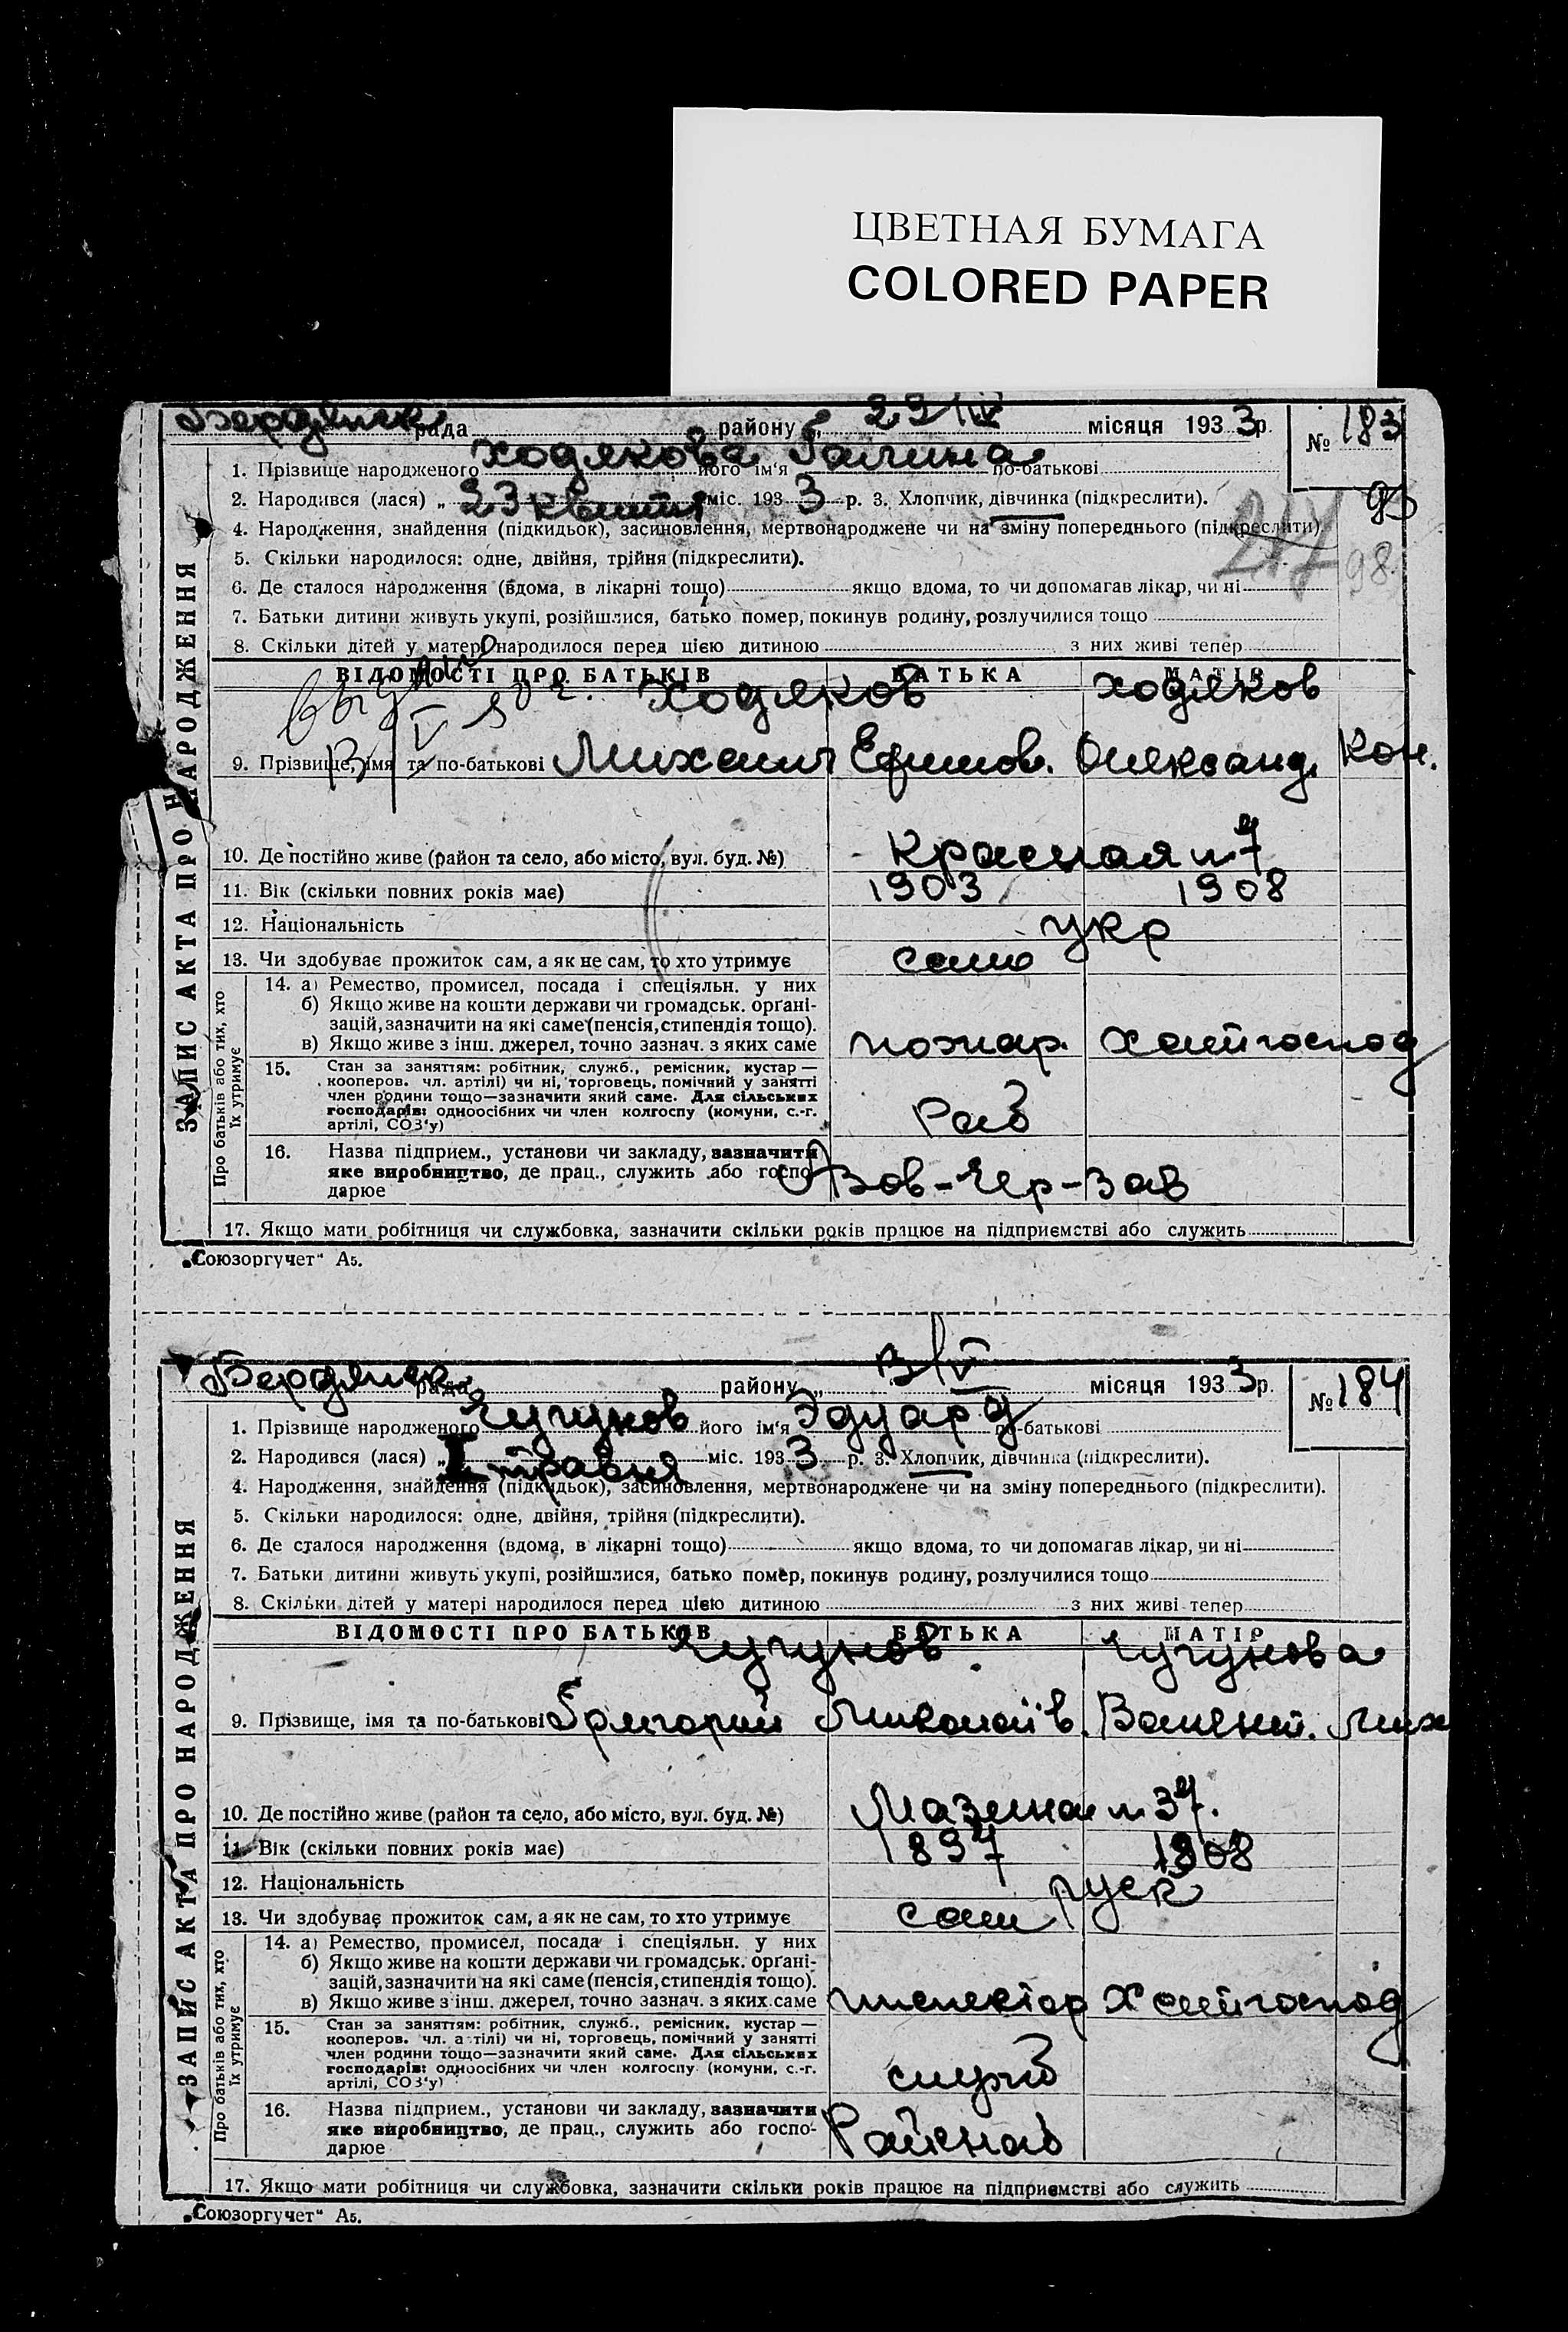 ЦВЕТНАЯ БУМАГА
COLORED PAPER
Бердянськ рада району „ 29/IV місяця 1933 р. № 183
1. Прізвище народженого Ходякова його ім'я Галина по-батькові
2. Народився (лася) „ 23 квітня міс. 1933 р. 3. Хлопчик, дівчинка (підкреслити).
95
4. Народження, знайдення (підкидьок), засиновлення, мертвонароджене чи на зміну попереднього (підкреслити).
217 98
5. Скільки народилося: одне, двійня, трійня (підкреслити).
6. Де сталося народження (вдома, в лікарні тощо) якщо вдома, то чи допомагав лікар, чи ні
7. Батьки дитини живуть укупі, розійшлися, батько помер, покинув родину, розлучилися тощо
8. Скільки дітей у матері народилося перед цією дитиною з них живі тепер
ЗАПИС АКТА ПРО НАРОДЖЕННЯ
ВІДОМОСТІ ПРО БАТЬКІВ БАТЬКА МАТІР
Ходяков Ходяков
9. Прізвище, імя та по-батькові Михаил Ефимов. Олександ. Кон.
10. Де постійно живе (район та село, або місто, вул. буд. №) Красная № 7
11. Вік (скільки повних років має) 1903 1908
12. Національність укр
13. Чи здобуває прожиток сам, а як не сам, то хто утримує сам
Про батьків або тих, хто їх утримує
14. а) Ремество, промисел, посада і спеціяльн. у них
б) Якщо живе на кошти держави чи громадськ. орґані-
зацій, зазначити на які саме (пенсія, стипендія тощо).
в) Якщо живе з інш. джерел, точно зазнач. з яких саме пожар. Хатнгоспод
15. Стан за заняттям: робітник, служб., ремісник, кустар —
кооперов. чл. артілі) чи ні, торговець, помічний у занятті
член родини тощо—зазначити який саме. Для сільських
господарів: одноосібних чи член колгоспу (комуни, с.-г.
артілі, СОЗ'у) Роб
16. Назва підприєм., установи чи закладу, зазначити
яке виробництво, де прац., служить або госпо-
дарюе Азов-Чер-Зав
17. Якщо мати робітниця чи службовка, зазначити скільки років працює на підприємстві або служить
„Союзоргучет“ А5.
Бердянськ рада району „ 3/V місяця 1933 р. № 184
1. Прізвище народженого Чугунов його ім'я Эдуард по-батькові
2. Народився (лася) „ 1 травня міс. 1933 р. 3. Хлопчик, дівчинка (підкреслити).
4. Народження, знайдення (підкидьок), засиновлення, мертвонароджене чи на зміну попереднього (підкреслити).
5. Скільки народилося: одне, двійня, трійня (підкреслити).
6. Де сталося народження (вдома, в лікарні тощо) якщо вдома, то чи допомагав лікар, чи ні
7. Батьки дитини живуть укупі, розійшлися, батько помер, покинув родину, розлучилися тощо
8. Скільки дітей у матері народилося перед цією дитиною з них живі тепер
ЗАПИС АКТА ПРО НАРОДЖЕННЯ
ВІДОМОСТІ ПРО БАТЬКІВ БАТЬКА МАТІР
Чугунов Чугунова
9. Прізвище, імя та по-батькові Григорий Миколаїв. Валент. Мих
10. Де постійно живе (район та село, або місто, вул. буд. №) Мазина № 37.
11. Вік (скільки повних років має) 1897 1908
12. Національність руск
13. Чи здобуває прожиток сам, а як не сам, то хто утримує сам
Про батьків або тих, хто їх утримує
14. а) Ремество, промисел, посада і спеціяльн. у них
б) Якщо живе на кошти держави чи громадськ. орґані-
зацій, зазначити на які саме (пенсія, стипендія тощо).
в) Якщо живе з інш. джерел, точно зазнач. з яких саме инспектор Хатнгоспод
15. Стан за заняттям: робітник, служб., ремісник, кустар —
кооперов. чл. артілі) чи ні, торговець, помічний у занятті
член родини тощо—зазначити який саме. Для сільських
господарів: одноосібних чи член колгоспу (комуни, с.-г.
артілі, СОЗ'у) служб
16. Назва підприєм., установи чи закладу, зазначити
яке виробництво, де прац., служить або госпо-
дарюе Райснаб
17. Якщо мати робітниця чи службовка, зазначити скільки років працює на підприємстві або служить
„Союзоргучет“ А5.